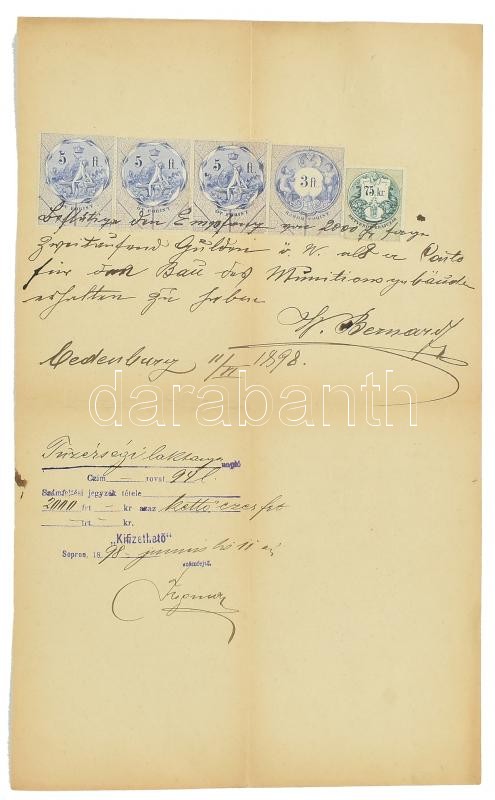 5 ft 5 ft 5 ft 3 ft. 75 kr.
ÖT FORINT ÖT FORINT ÖT FORINT HÁROM FORINT
Bestätige den Empfang von 2000 fr sage
Zweitausend Gulden ö. W. als a Conto
für den Bau des Munitionsgebäude
erhalten zu haben
W. Bernard
Oedenburg 11/VI 1898.
darabanth
Tüzérségi laktanya napló
Czim — rovat 94 l.
Számfejtési jegyzék tétele
2000 frt — kr azaz kettő ezer frt
— frt — kr.
„Kifizethető"
Sopron, 18 98 junius hó 11 én
számfejtő.